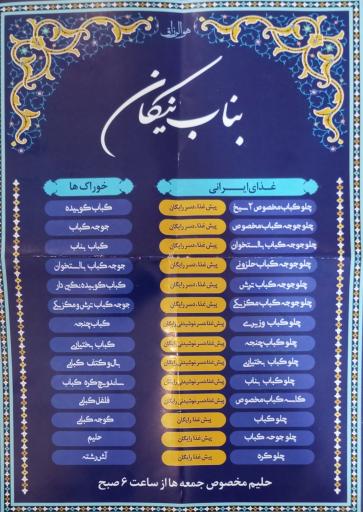 هوالرزاق
بناب نیکان
غذای ایرانی
خوراک ها
چلو کباب مخصوص ۲ سیخ
پیش غذا، دسر رایگان
کباب کوبیده
چلو جوجه کباب مخصوص
پیش غذا، دسر رایگان
جوجه کباب
چلو جوجه کباب بااستخوان
پیش غذا، دسر رایگان
کباب بناب
چلو جوجه کباب حلزونی
پیش غذا، دسر رایگان
جوجه کباب بااستخوان
چلو جوجه کباب ترش
پیش غذا، دسر رایگان
کباب کوبیده نگین دار
چلو جوجه کباب مکزیکی
پیش غذا، دسر رایگان
جوجه کباب ترش و مکزیکی
چلو کباب وزیری
پیش غذا، دسر، نوشیدنی رایگان
کباب چنجه
چلو کباب چنجه
پیش غذا، دسر، نوشیدنی رایگان
کباب بختیاری
چلو کباب بختیاری
پیش غذا، دسر، نوشیدنی رایگان
بال و کتف کبابی
چلو کباب بناب
پیش غذا، دسر، نوشیدنی رایگان
کاسه کباب مخصوص
پیش غذا، دسر، نوشیدنی رایگان
فلفل کبابی
چلو کباب
پیش غذا رایگان
گوجه کبابی
چلو جوجه کباب
پیش غذا رایگان
حلیم
چلو کره
پیش غذا رایگان
آش رشته
حلیم مخصوص جمعه ها از ساعت ۶ صبح